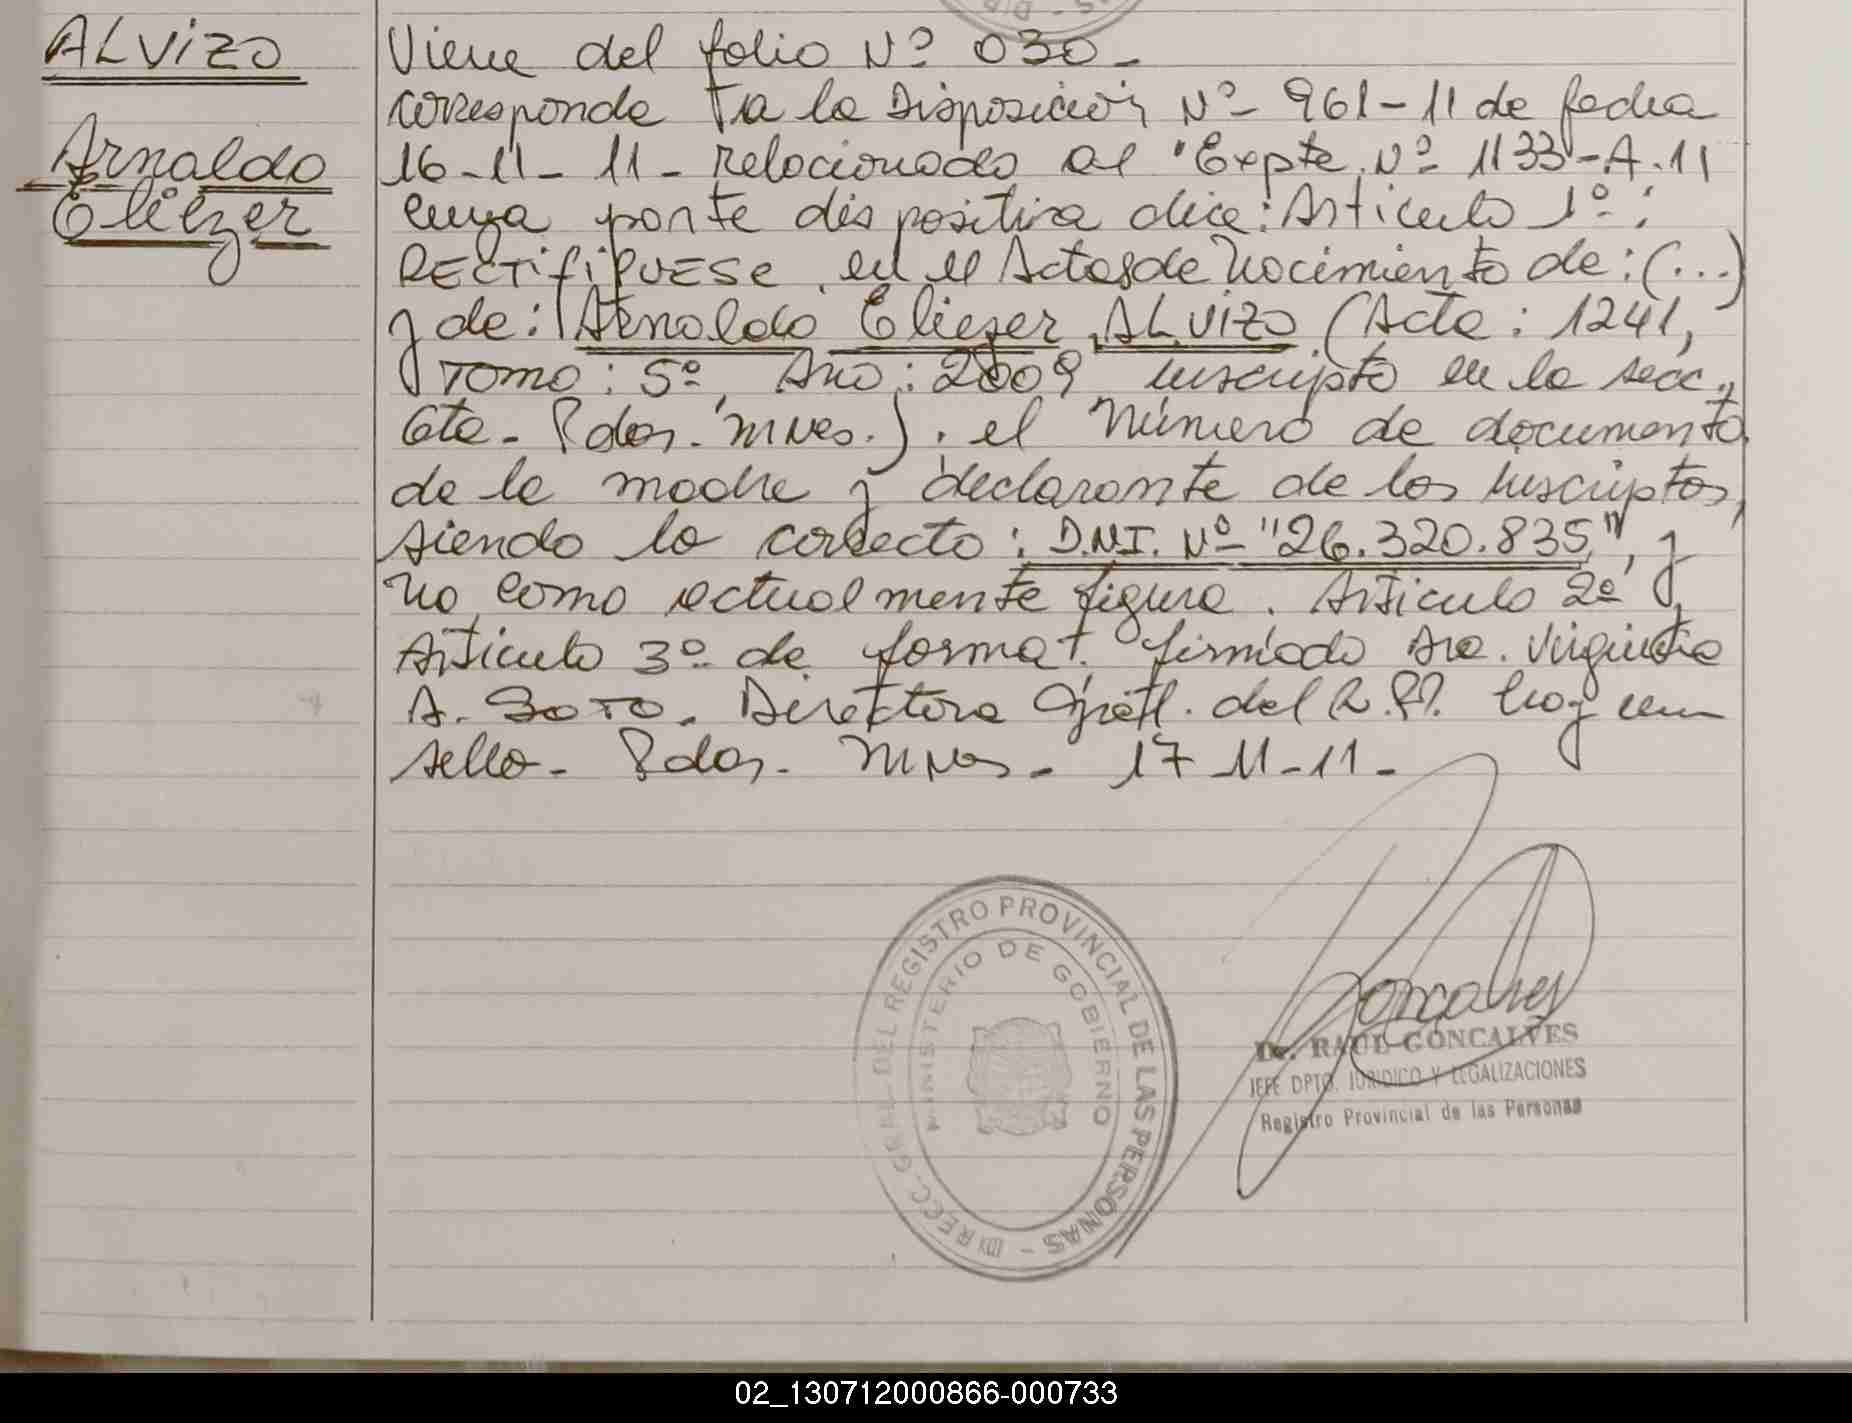 ALVIZO
Arnaldo
Eliezer
Viene del folio Nº 030 -
corresponde a la Disposición Nº 961-11 de fecha
16-11-11- relacionado al Expte. Nº 1133-A-11
cuya parte dispositiva dice: Artículo 1º:
RECTIFIQUESE, en el Actas de Nacimiento de: (...)
y de: Arnaldo Eliezer ALVIZO (Acta: 1241,
Tomo: 5º, Año: 2009 inscripto en la secc.
6ta- Pdas. Mnes.). el Número de documento
de la madre y declarante de los inscriptos,
siendo lo correcto: D.N.I. Nº "26.320.835", y
no como actualmente figura. Artículo 2º y
Artículo 3º de forma. firmado Dra. Virginia
A. SOTO. Directora Gral. del R.P.P. hay un
sello- Pdas. Mnes - 17-11-11-
DIRECC. GRAL. DEL REGISTRO PROVINCIAL DE LAS PERSONAS -
MINISTERIO DE GOBIERNO
Goncalves
Dr. RAUL GONCALVES
JEFE DPTO. JURIDICO Y LEGALIZACIONES
Registro Provincial de las Personas
02_130712000866-000733